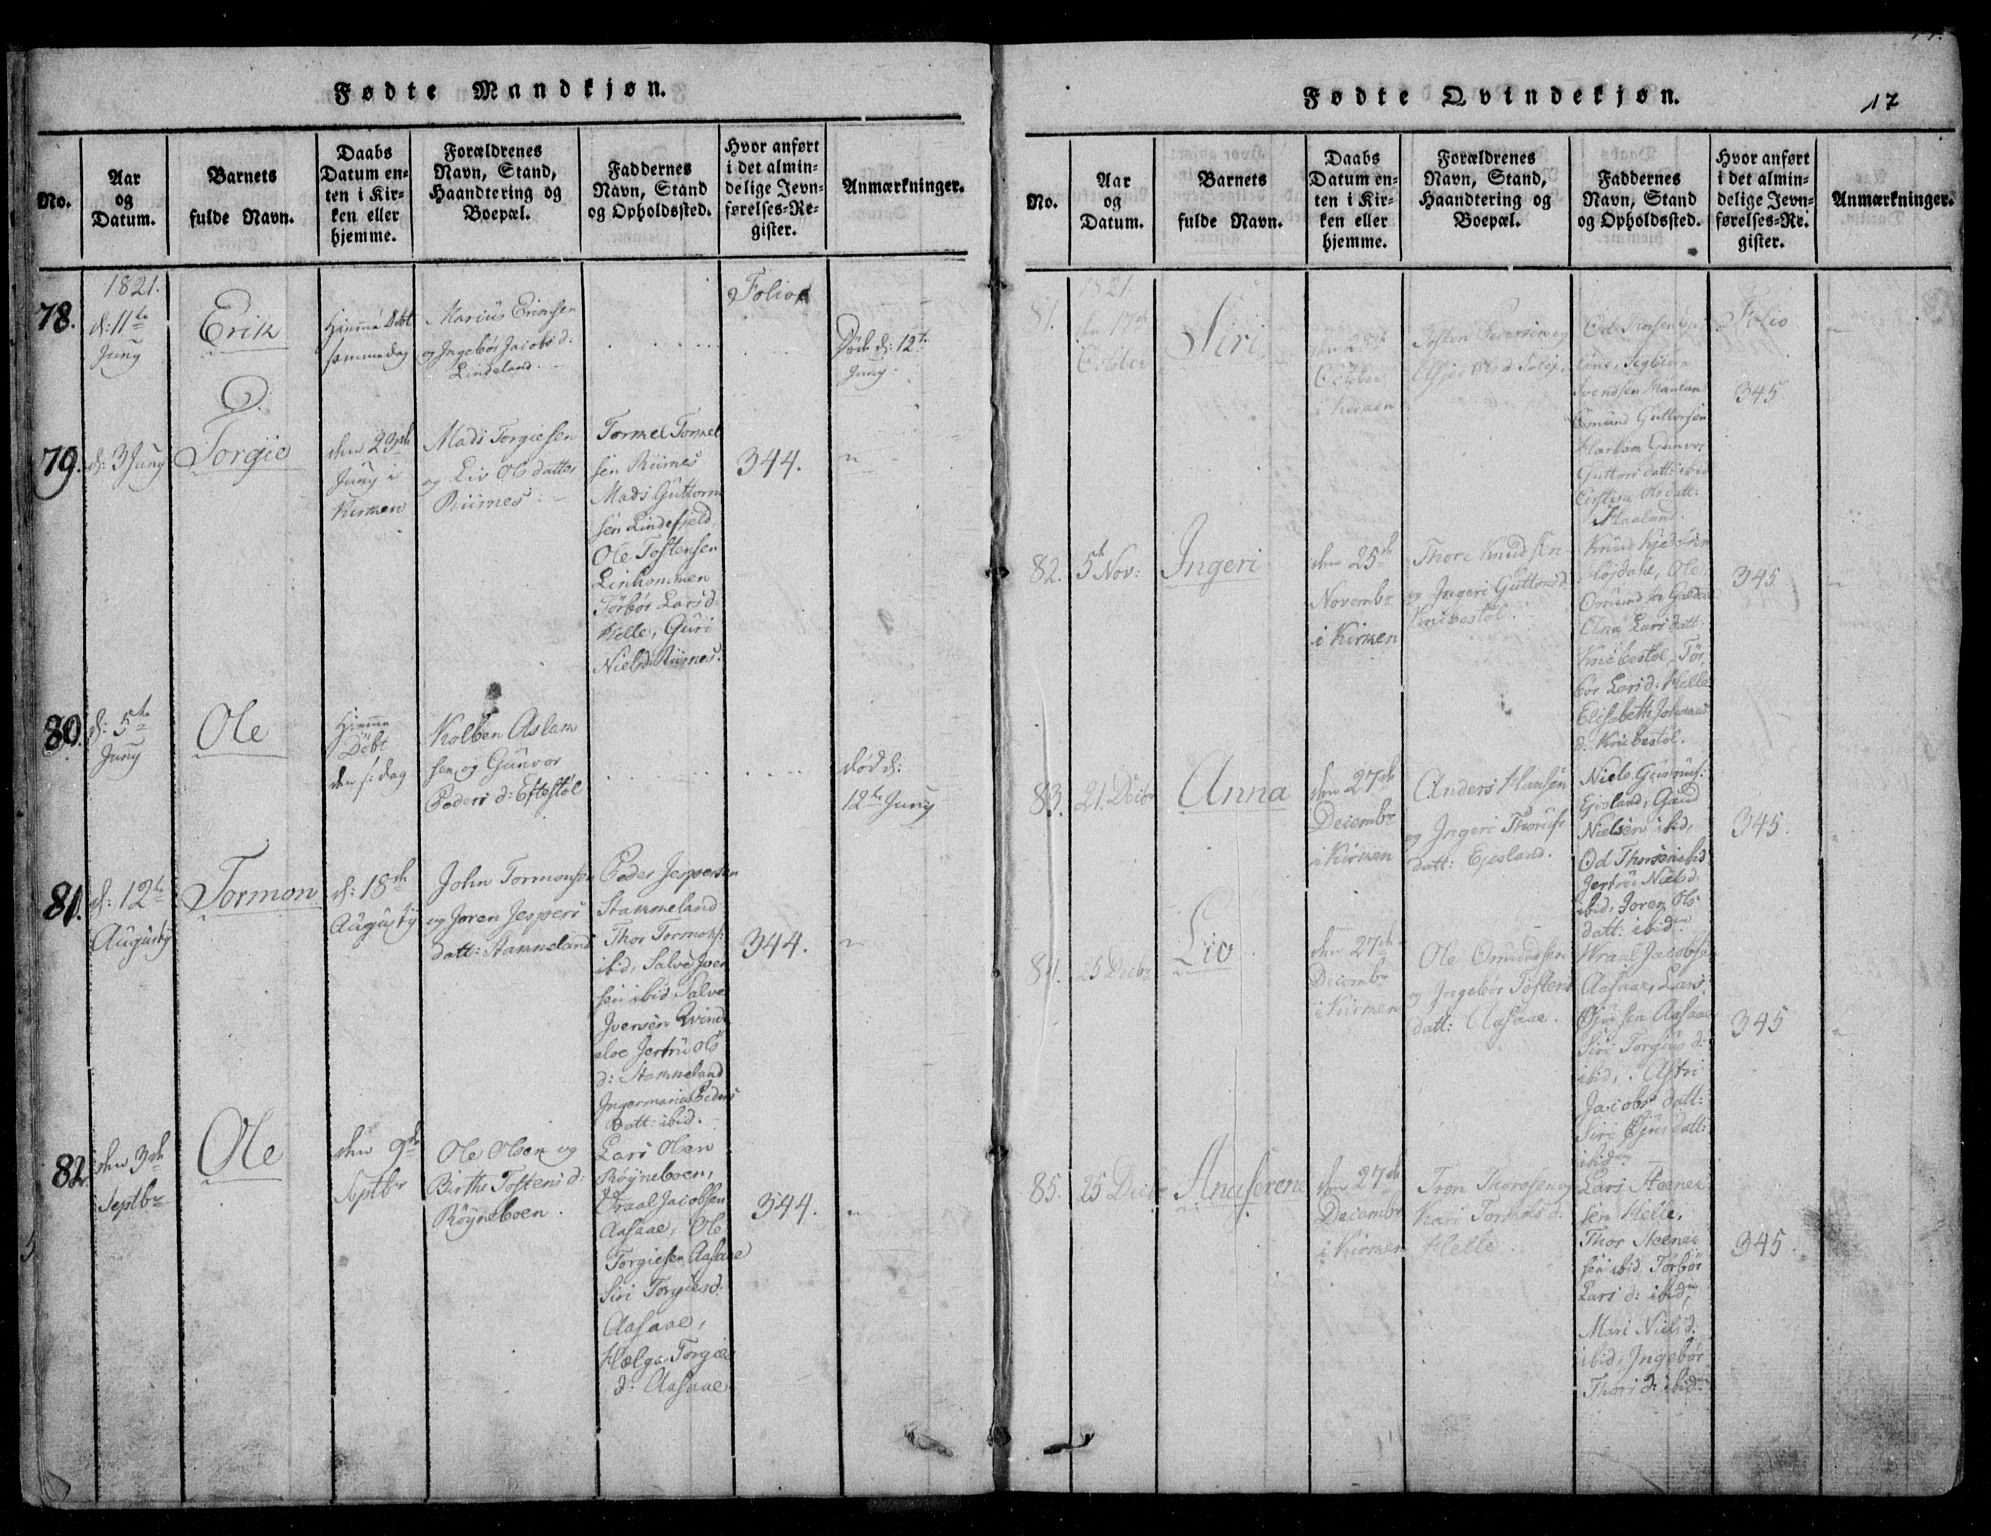 Fødte Mandkjøn.
No.
Aar
og
Datum.
Barnets
fulde Navn.
Daabs
Datum en-
ten i Kir-
ken eller
hjemme.
Forældrenes
Navn, Stand,
Haandtering og
Boepæl.
Faddernes
Navn, Stand
og Opholdssted.
Hvor anført
i det almin-
delige Jevn-
førelses-Re-
gister.
Anmærkninger.
1821.
78.
d: 11te
Juny
Erik
Hiemme Døbt
samme dag
Marius Erichsen
og Ingebør Jacobs d.
Lindeland.
Folio
Døde d: 12te
Juny.
79.
d: 3 Juny
Torgie
den 23de
Juny i
Kirken
Mads Torgiesen
og Liv Ols datter
Riisnes.
Tormel Tormel
sen Riisnes
Mads Guttorm
sen Lindefjeld
Ole Tostensen
Linhommen
Törbör Lars d
Helle, Guri
Niels d: Riisnes.
344.
80.
d: 5te
Juny
Ole
Hjemme
Döbt
den s: dag
Kolben Aslam
sen og Gunvor
Peders d: Eftestöl
død d:
12te Juny
81.
d: 12te
Augusty
Tormon
d: 18de
Augusty
John Tormonsen
og Joren Jespers
datt: Stammeland
Peder Jespersen
Stammeland
Thor Tormons:
ibid, Salve Iver
sen ibid Salve
Iversen Qvind
sloe Jertru Ols
d: Stammeland
Ingermaria Peders
datt: ibid.
344.
82.
den 3de
Septbr
Ole
den 9de
Septbr
Ole Olsen og
Birthe Tostens d:
Röyneboen.
Lars Olsen
Röyneboen,
Vraal Jacobsen
Aasaae, Ole
Torgiesen Aasaae
Siri Torgies d:
Aasaae,
Hælge Torgie
d: Aasaae
344.
Fødte Qvindekjøn.
17
No.
Aar
og
Datum.
Barnets
fulde Navn.
Daabs
Datum en-
ten i Kir-
ken eller
hjemme.
Forældrenes
Navn, Stand,
Haandtering og
Boepæl.
Faddernes
Navn, Stand
og Opholdssted.
Hvor anført
i det almin-
delige Jevn-
førelses-Re-
gister.
Anmærkninger.
1821.
81.
den 17de
October
Siri
den 28de
October
i Kirken
Tosten
Svendsen Haaland
Guttorsen
Gunvor
Guttors datt: ibid
Ols datt:
Haaland.
Folio
345
82.
5te Nov:
Ingeri
den 25de
Novembr
i Kirken
Thore Knudsen
og Ingeri Guttorms d:
Knibestöl.
Knud
Ole
Ana Lars datt:
Knibestöl, Tör
bör Lars d: Helle
Elisabeth
d: Knibestöl.
345
83.
21. Decbr
Anna
den 27de
Decembr
i Kirken
Anders Hansen
og Ingeri
datt: Egeland.
Niels
Egeland, Gaud
Nielsen ibid,
Od Thorsen ibid
Jertru Niels d:
ibid, Joren Ols
datt: ibidm
345.
84.
25 Decbr
Liv
den 27de
Decembr
i Kirken
Ole Omundsen
og Ingebör Tostens
datt: Aasaae.
Wraal Jacobsen
Aasaae, Lars
Aasaae
Siri Torgius d:
ibid, Astri
Jacobs datt:
Siri datt:
ibidm
345
85.
25 Decbr
Anaserene
den 27de
Decembr
i Kirken
Tron Thoresen og
Kari Tormods d:
Helle
Lars Steener
sen Helle,
Thor Steener
sen ibid, Törbör
Lars d: ibidm,
Mari Niels d.
ibid, Ingebör
Thors d: ibidm
345.